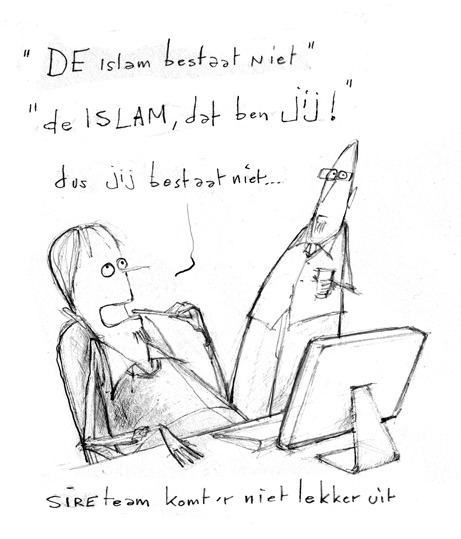 "DE islam bestaat niet"
"de ISLAM, dat ben jij!"
dus jij bestaat niet...
SIRE team komt 'r niet lekker uit